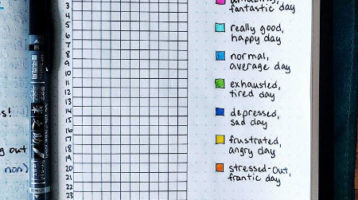 3
4
5
6
7
8
9
10
11
12
13
14
15
16
17
18
19
20
21
22
23
fantastic day
really good,
happy day
normal,
average day
exhausted,
tired day
depressed,
sad day
frustrated,
angry day
stressed-out,
frantic day
s!
out
non)